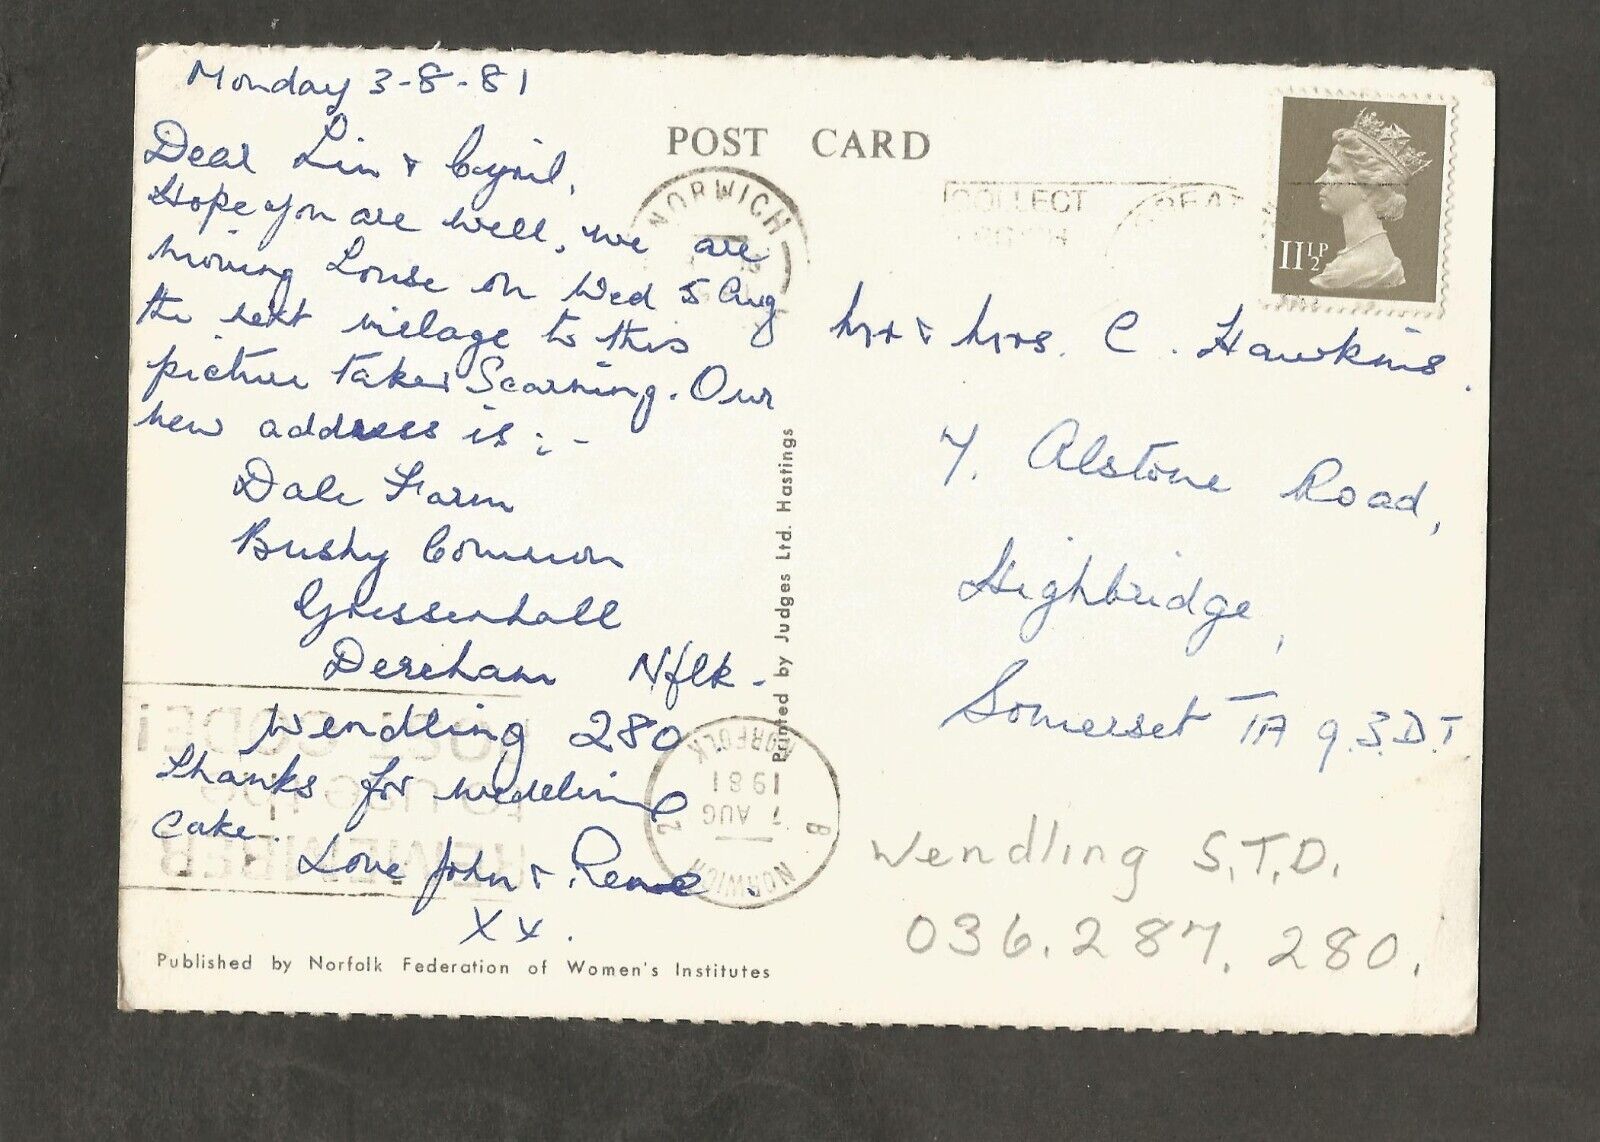 Monday 3-8-81
Dear Lin & Cyril,
Hope you are well, we are
moving house on Wed 5 Aug
the next village to this
picture taken Scarning. Our
new address is :-
Dale Farm
Bushy Common
Gressenhall
Dereham Nflk-
Wendling 280
Thanks for wedding
cake. Love John & Rene.
XX.
Published by Norfolk Federation of Women's Institutes
POST CARD
Printed by Judges Ltd. Hastings
NORWICH
COLLECT
11½P
Mr & Mrs. C. Hawkins.
7, Alstone Road,
Highbridge,
Somerset TA 9.3.D.T
Wendling S.T.D.
036.287.280.
NORWICH
NORFOLK
7 AUG
1981
B
2
REMEMBER
to use the
POST CODE!